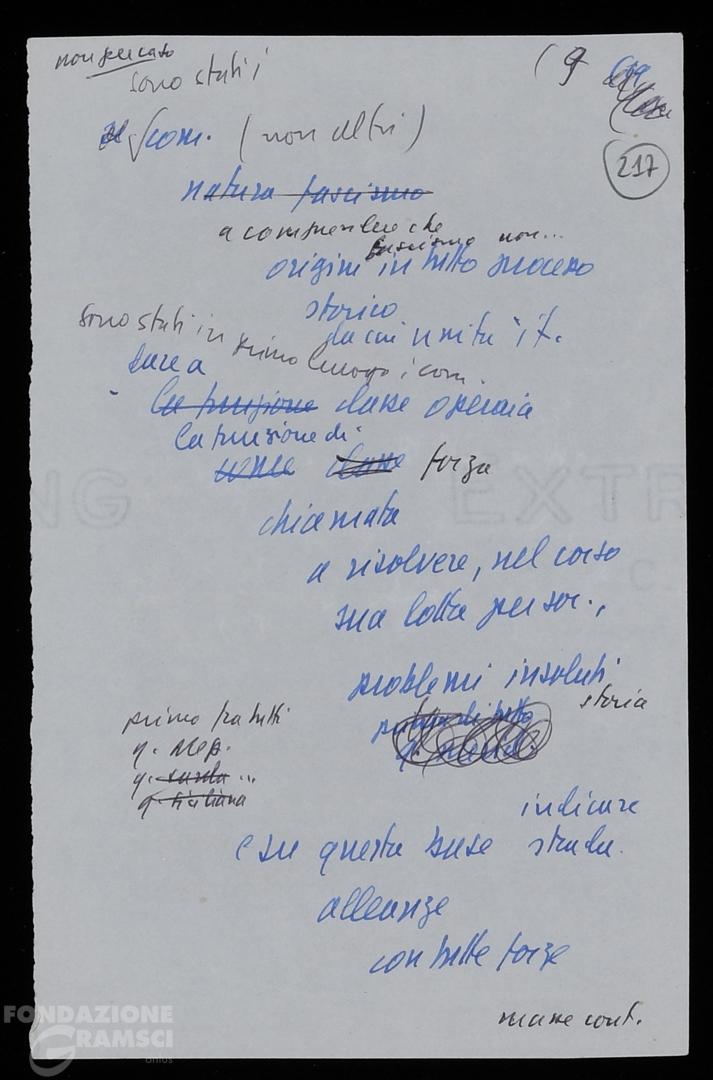 non per caso
sono stati i
(9
217
com. (non altri)
natura fascismo
a comprendere che
fascismo non...
origini in tutto processo
storico
da cui unità it.
sono stati in primo luogo i com.
dare a
la funzione classe operaia
la funzione di
come classe forza
chiamata
a risolvere, nel corso
sua lotta per soc.,
problemi insoluti
storia
primo fra tutti
q. Mer.
q. sarda ...
q. siciliana
indicare
e su questa base strada
alleanze
con tutte forze
masse cont.
NG
EXTR
FONDAZIONE
GRAMSCI
onlus